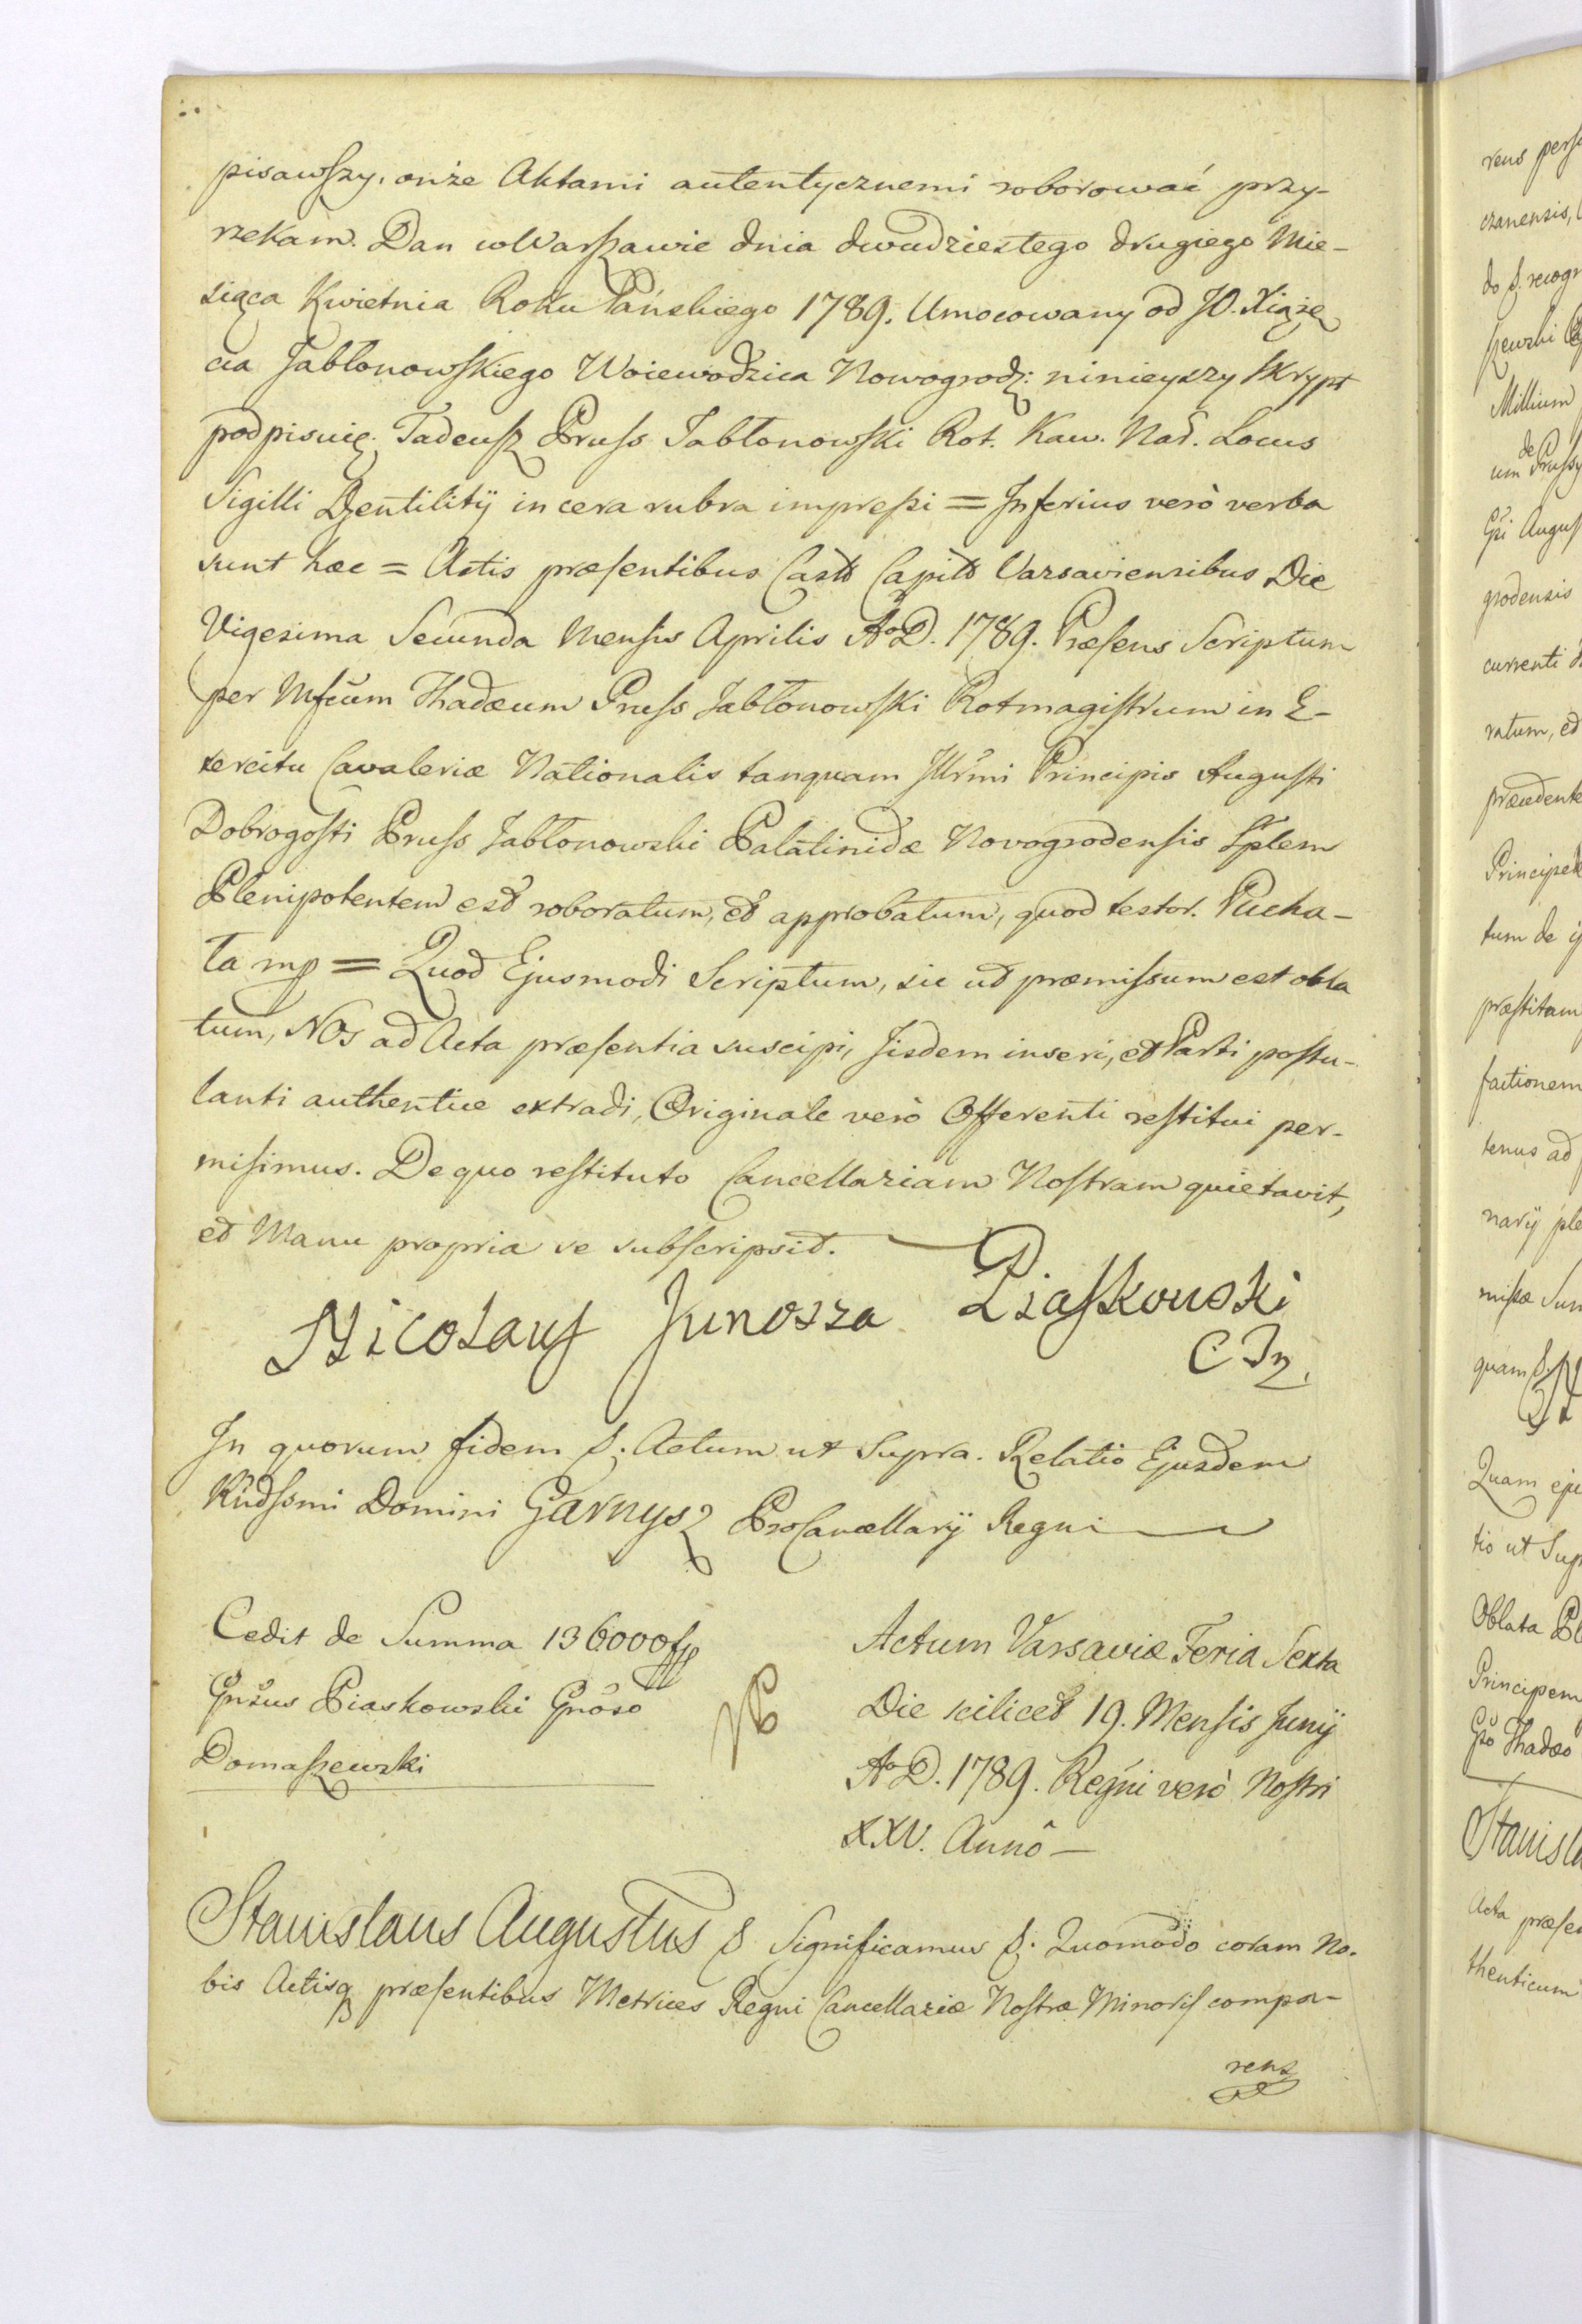 pisawszy, oniże Aktami autentycznemi roborować przy-
rzekam. Dan w Warszawie dnia dwudziestego drugiego Mie-
siąca Kwietnia Roku Pańskiego 1789. Umocowany od JO. Xiążę
cia Jabłonowskiego Woiewodzica Nowogrodz: ninieyszy skrypt
podpisuię. Tadeusz Pruss Jabłonowski Rot. Kaw. Nad. Locus
Sigilli Gentilitÿ in cera rubra impressi = Inferius verò verba
sunt hæc = Actis præsentibus Castr Capitr Varsaviensibus Die
Vigesima Secunda Mensis Aprilis Aº D. 1789. Præsens Scriptum
per Mfcum Thadæum Pruss Jabłonowski Rotmagistrum in E-
xercitu Cavaleriæ Nationalis tanquam Jllrmi Principis Augusti
Dobrogosti Pruss Jabłonowski Palatinidæ Novogrodensis Splem
Plenipotentem est roboratum, et approbatum, quod testor. Pucha-
ła mp = Quod Ejusmodi Scriptum, sic ut præmissum est obla
tum, Nos ad Acta præsentia suscipi, Iisdem inseri, et Parti postu-
lanti authentice extradi, Originale verò Offerenti restitui per-
misimus. De quo restituto Cancellariam Nostram quietavit,
et Manu propria se subscripsit.
Nicolaus Junosza Piaskowski
C Jz.
In quorum fidem &. Actum ut Supra. Relatio Ejusdem
Rndssmi Domini Garnysz ProCancellarÿ Regni
Cedit de Summa 136000 fp
Gnsus Piaskowski Gnoso
Domaszewski
Actum Varsaviæ Feria Sexta
Die scilicet 19. Mensis Junÿ
Aº D. 1789. Regni verò Nostri
XXV. Annô
Stanislaus Augustus & Significamus &. Quomodo coram No-
bis Actisq præsentibus Metrices Regni Cancellariæ Nostræ Minoris compa-
rens
rens
czanensis,
Millium
grodensis
currenti
ratum, et
præcedente
Principe
tum de
præstitam
factionem
tenus ad
narÿ
missæ
quam
Quam
tio ut
Oblata
Principem
Gso Thadæo
Acta
thenticum